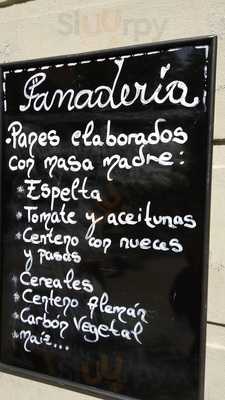 Sluurpy
Panadería
•Panes elaborados
con masa madre:
*Espelta
*Tomate y aceitunas
*Centeno con nueces
y pasas
*Cereales
*Centeno Alemán
*Carbón Vegetal
*Maíz...
Sluurpy